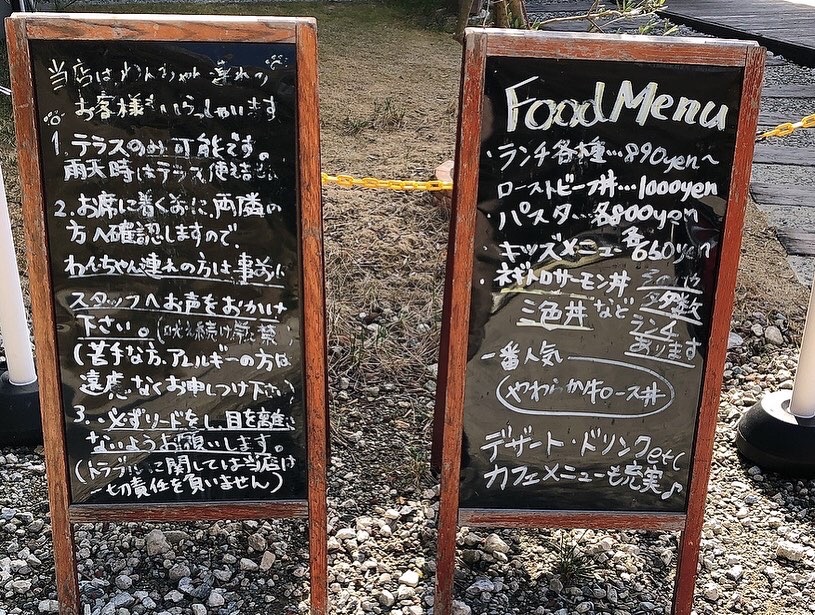 当店はわんちゃん連れの
お客様もいらっしゃいます
1. テラスのみ可能です。
雨天時はテラス使えません
2. お席に着く前に、両隣の
方へ確認しますので、
わんちゃん連れの方は事前に
スタッフへお声をおかけ
下さい。(吠え続け厳禁)
(苦手な方、アレルギーの方は
遠慮なくお申しつけ下さい)
3. 必ずリードをし、目を離さ
ないようお願いします。
(トラブルに関しては当店は
一切責任を負いません)
Food Menu
・ランチ各種…890yen〜
ローストビーフ丼…1000yen
・パスタ…各800yen
・キッズメニュー各660yen
・ネギトロサーモン丼
三色丼など
その他
多数
ランチ
あります
一番人気
やわらか牛ロース丼
デザート・ドリンクetc
カフェメニューも充実♪